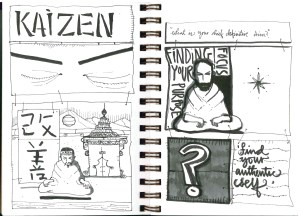 KAIZEN
改
善
"what is your chief definitive aim?"
FINDING
YOUR
PURPOSE
FOCUS
?
find
your
authentic
self!